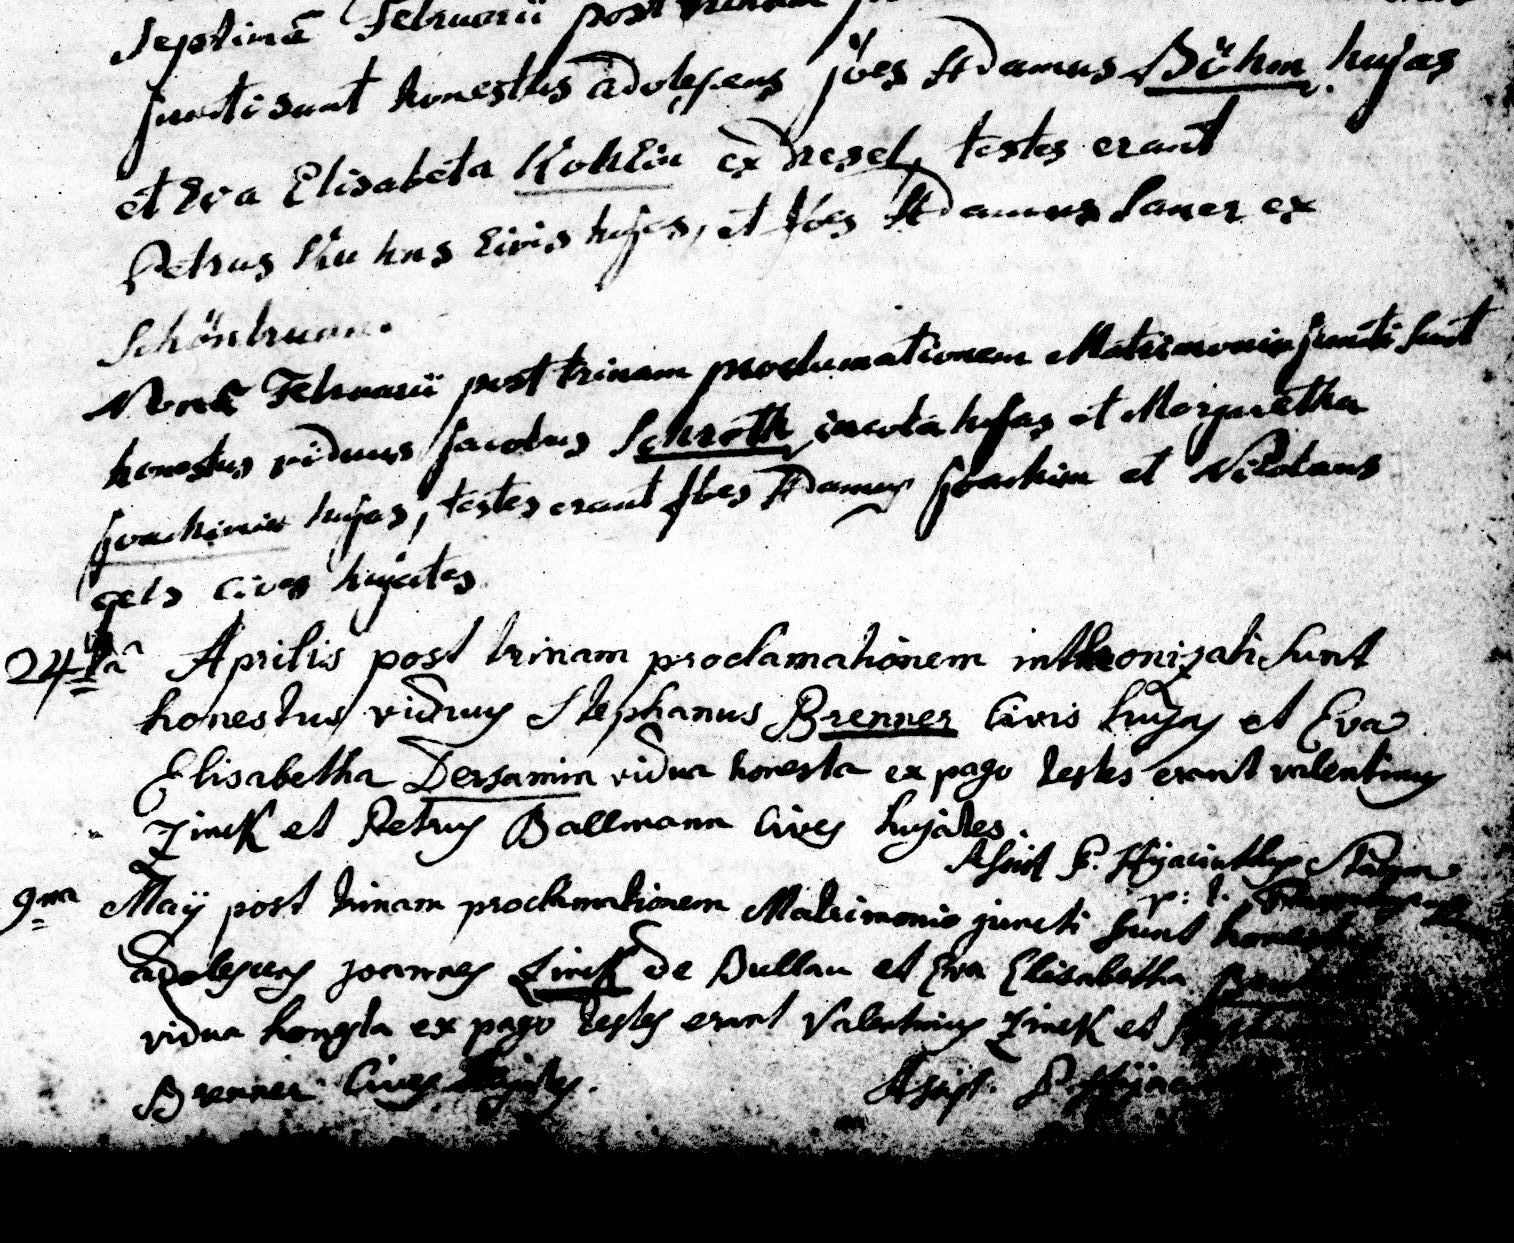 Septimâ Februarii post trinam
juncti sunt honestus adolescens Joes Adamus Böhm hujas
et Eva Elisabeta Kohlin ex Dresel, testes erant
Petrus Kuhns Civis hujas, et Joes Adamus Saner ex
Schönbrunn.
Nonâ Februarii post trinam proclamationem Matrimonio juncti sunt
honestus viduus Jacobus Schroth incola hujas et Margaretha
Joachimin hujas, testes erant Joes Adamus Joachim et Nicolaus
gels cives hujates
24ta Aprilis post trinam proclamationem inthronizati sunt
honestus viduus Stephanus Brenner Civis hujas et Eva
Elisabetha Dersamin vidua honesta ex pago testes erant valentinus
Zinck et Petrus Ballmann Cives hujates
Assist P. Hyacinthus
p: t.
9na Maÿ post trinam proclamationem Matrimonio juncti sunt honestus
adolescens joannes Zinck de Bullau et Eva Elisabetha
vidua honesta ex pago testes erant Valentinus Zinck et
Brenner Cives hujates.
Assist. P. Hyac